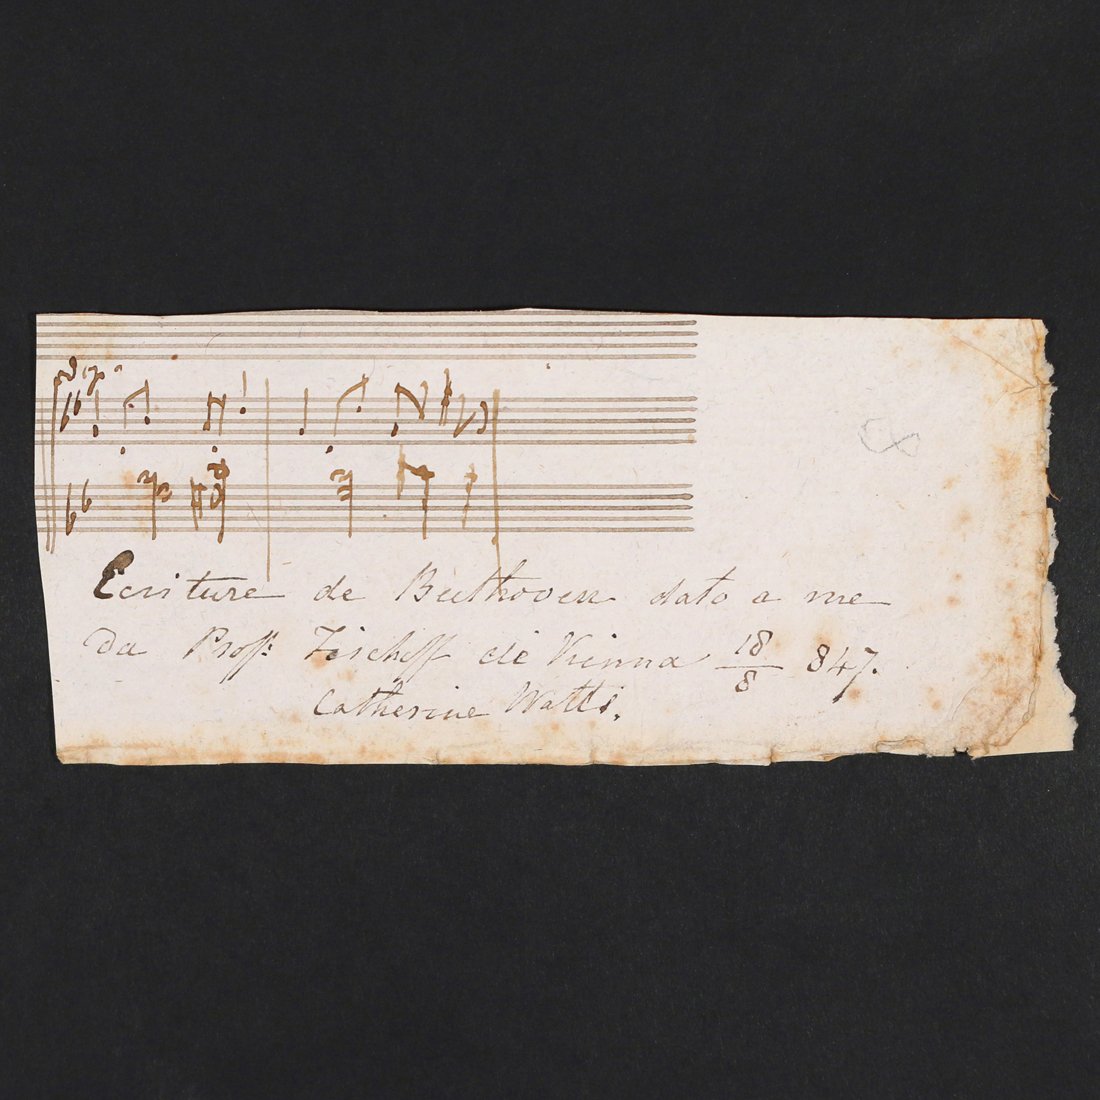 Ecriture de Beethoven dato a me
da Profs: Fischoff de Vienna 18/8 847.
Catherine Watts.